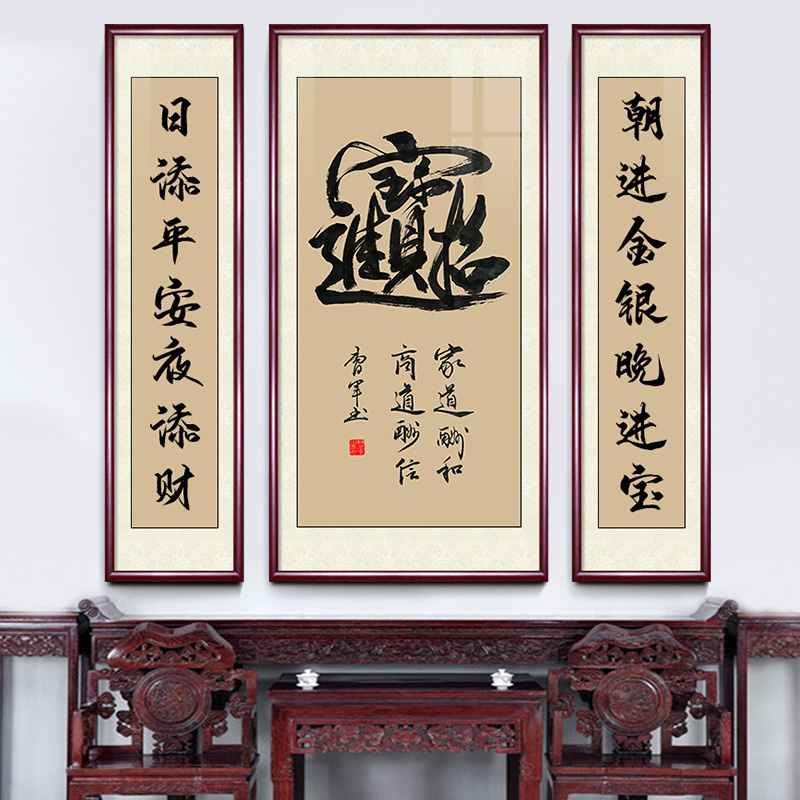 朝进金银晚进宝
招财进宝
家道酬和
商道酬信
曹军书
日添平安夜添财